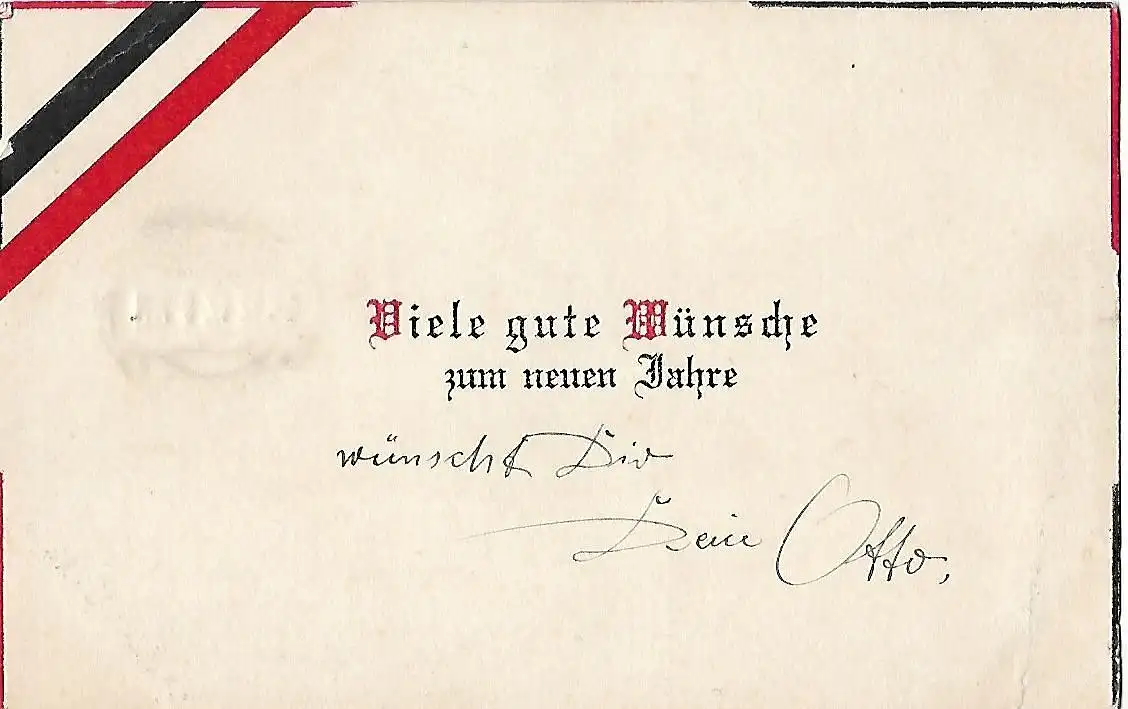 Viele gute Wünsche
zum neuen Jahre
wünscht Dir
Dein Otto,